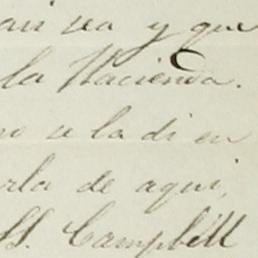 y que
la Hacienda.
se la di en
rla de aqui,
Campbell